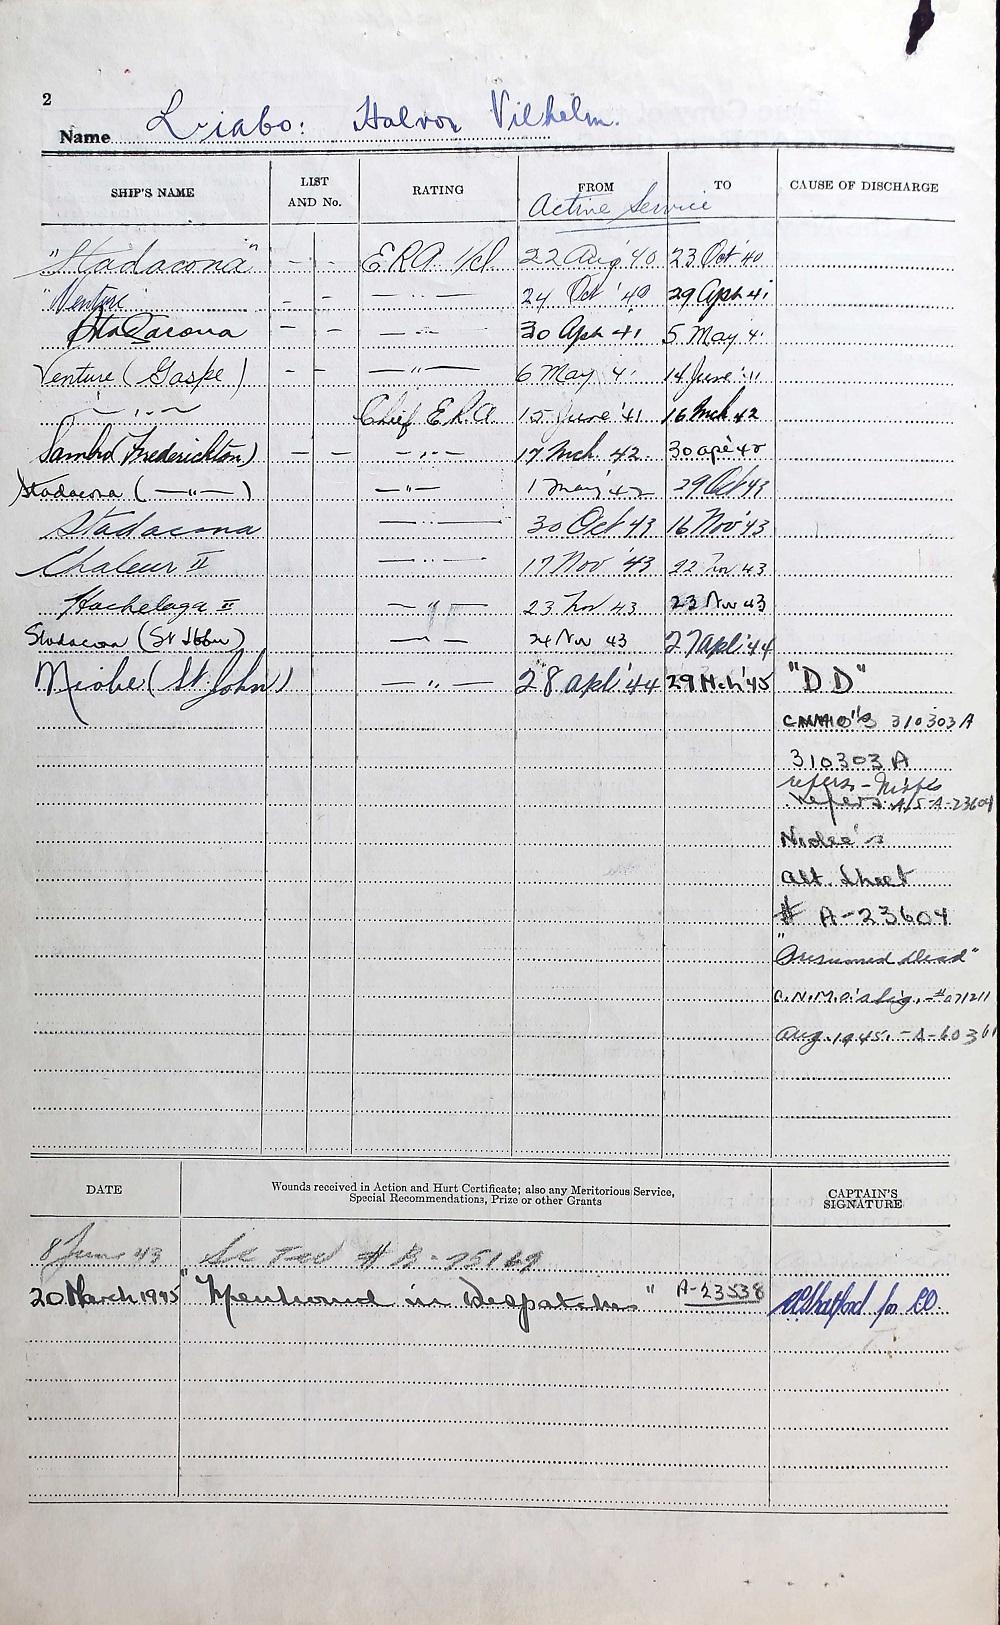 2
Name Liabo: Halvor Vilhelm.
SHIP'S NAME LIST AND No. RATING FROM TO CAUSE OF DISCHARGE
Active Service
"Stadacona" - - E.R.A. 1/cl 22 Aug '40 23 Oct '40
"Venture - - — " — 24 Oct '40 29 Apl 41
Stadacona - - — " — 30 Apl 41 5 May 4'
Venture (Gaspe) - - — " — 6 May 4' 14 June '41
— " — Chief E.R.A 15 June '41 16 Mch 42
Sambro (Frederickton) - - — " — 17 Mch 42. 30 Apl 42
Stadacona (— " —) — " — 1 May '42 29 Oct 43
Stadacona — " — 30 Oct 43 16 Nov '43
Chaleur II — " — 17 Nov '43 22 Nov 43
Hochelaga II — " — 23 Nov 43 23 Nov 43
Stadacona (St John) — " — 24 Nov 43 27 Apl '44
Niobe (St. John) — " — 28 Apl '44 29 Mch '45 "DD"
310303A
310303A
refers - Niobe
refers A/S-A-23604
Niobe's
alt. Sheet
# A-23604
"Presumed Dead"
C.N.M.O.'s Sig. - #071211
Aug. 1945. - A-60361
DATE Wounds received in Action and Hurt Certificate; also any Meritorious Service, CAPTAIN'S
Special Recommendations, Prize or other Grants SIGNATURE
8 June 43 # B-75169
20 March 1945 "Mentioned in Despatches" A-23538 for CO.